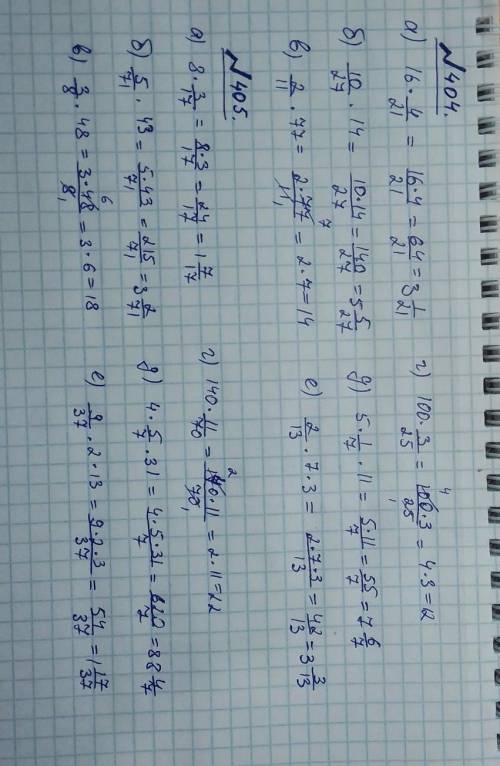 №404.
а) 16 · 4/21 = 16·4/21 = 64/21 = 3 1/21
б) 10/27 · 14 = 10·14/27 = 140/27 = 5 5/27
в) 2/11 · 77 = 2·77/11 = 2·7=14
г) 100 · 3/25 = 100·3/25 = 4·3=12
д) 5 · 1/7 · 11 = 5·11/7 = 55/7 = 7 6/7
е) 2/13 · 7 · 3 = 2·7·3/13 = 42/13 = 3 3/13
№405.
а) 8 · 3/17 = 8·3/17 = 24/17 = 1 7/17
б) 5/71 · 43 = 5·43/71 = 215/71 = 3 2/71
в) 3/8 · 48 = 3·48/8 = 3·6=18
г) 140 · 11/70 = 140·11/70 = 2·11=22
д) 4 · 5/7 · 31 = 4·5·31/7 = 620/7 = 88 4/7
е) 9/37 · 2 · 13 = 9·2·3/37 = 54/37 = 1 17/37